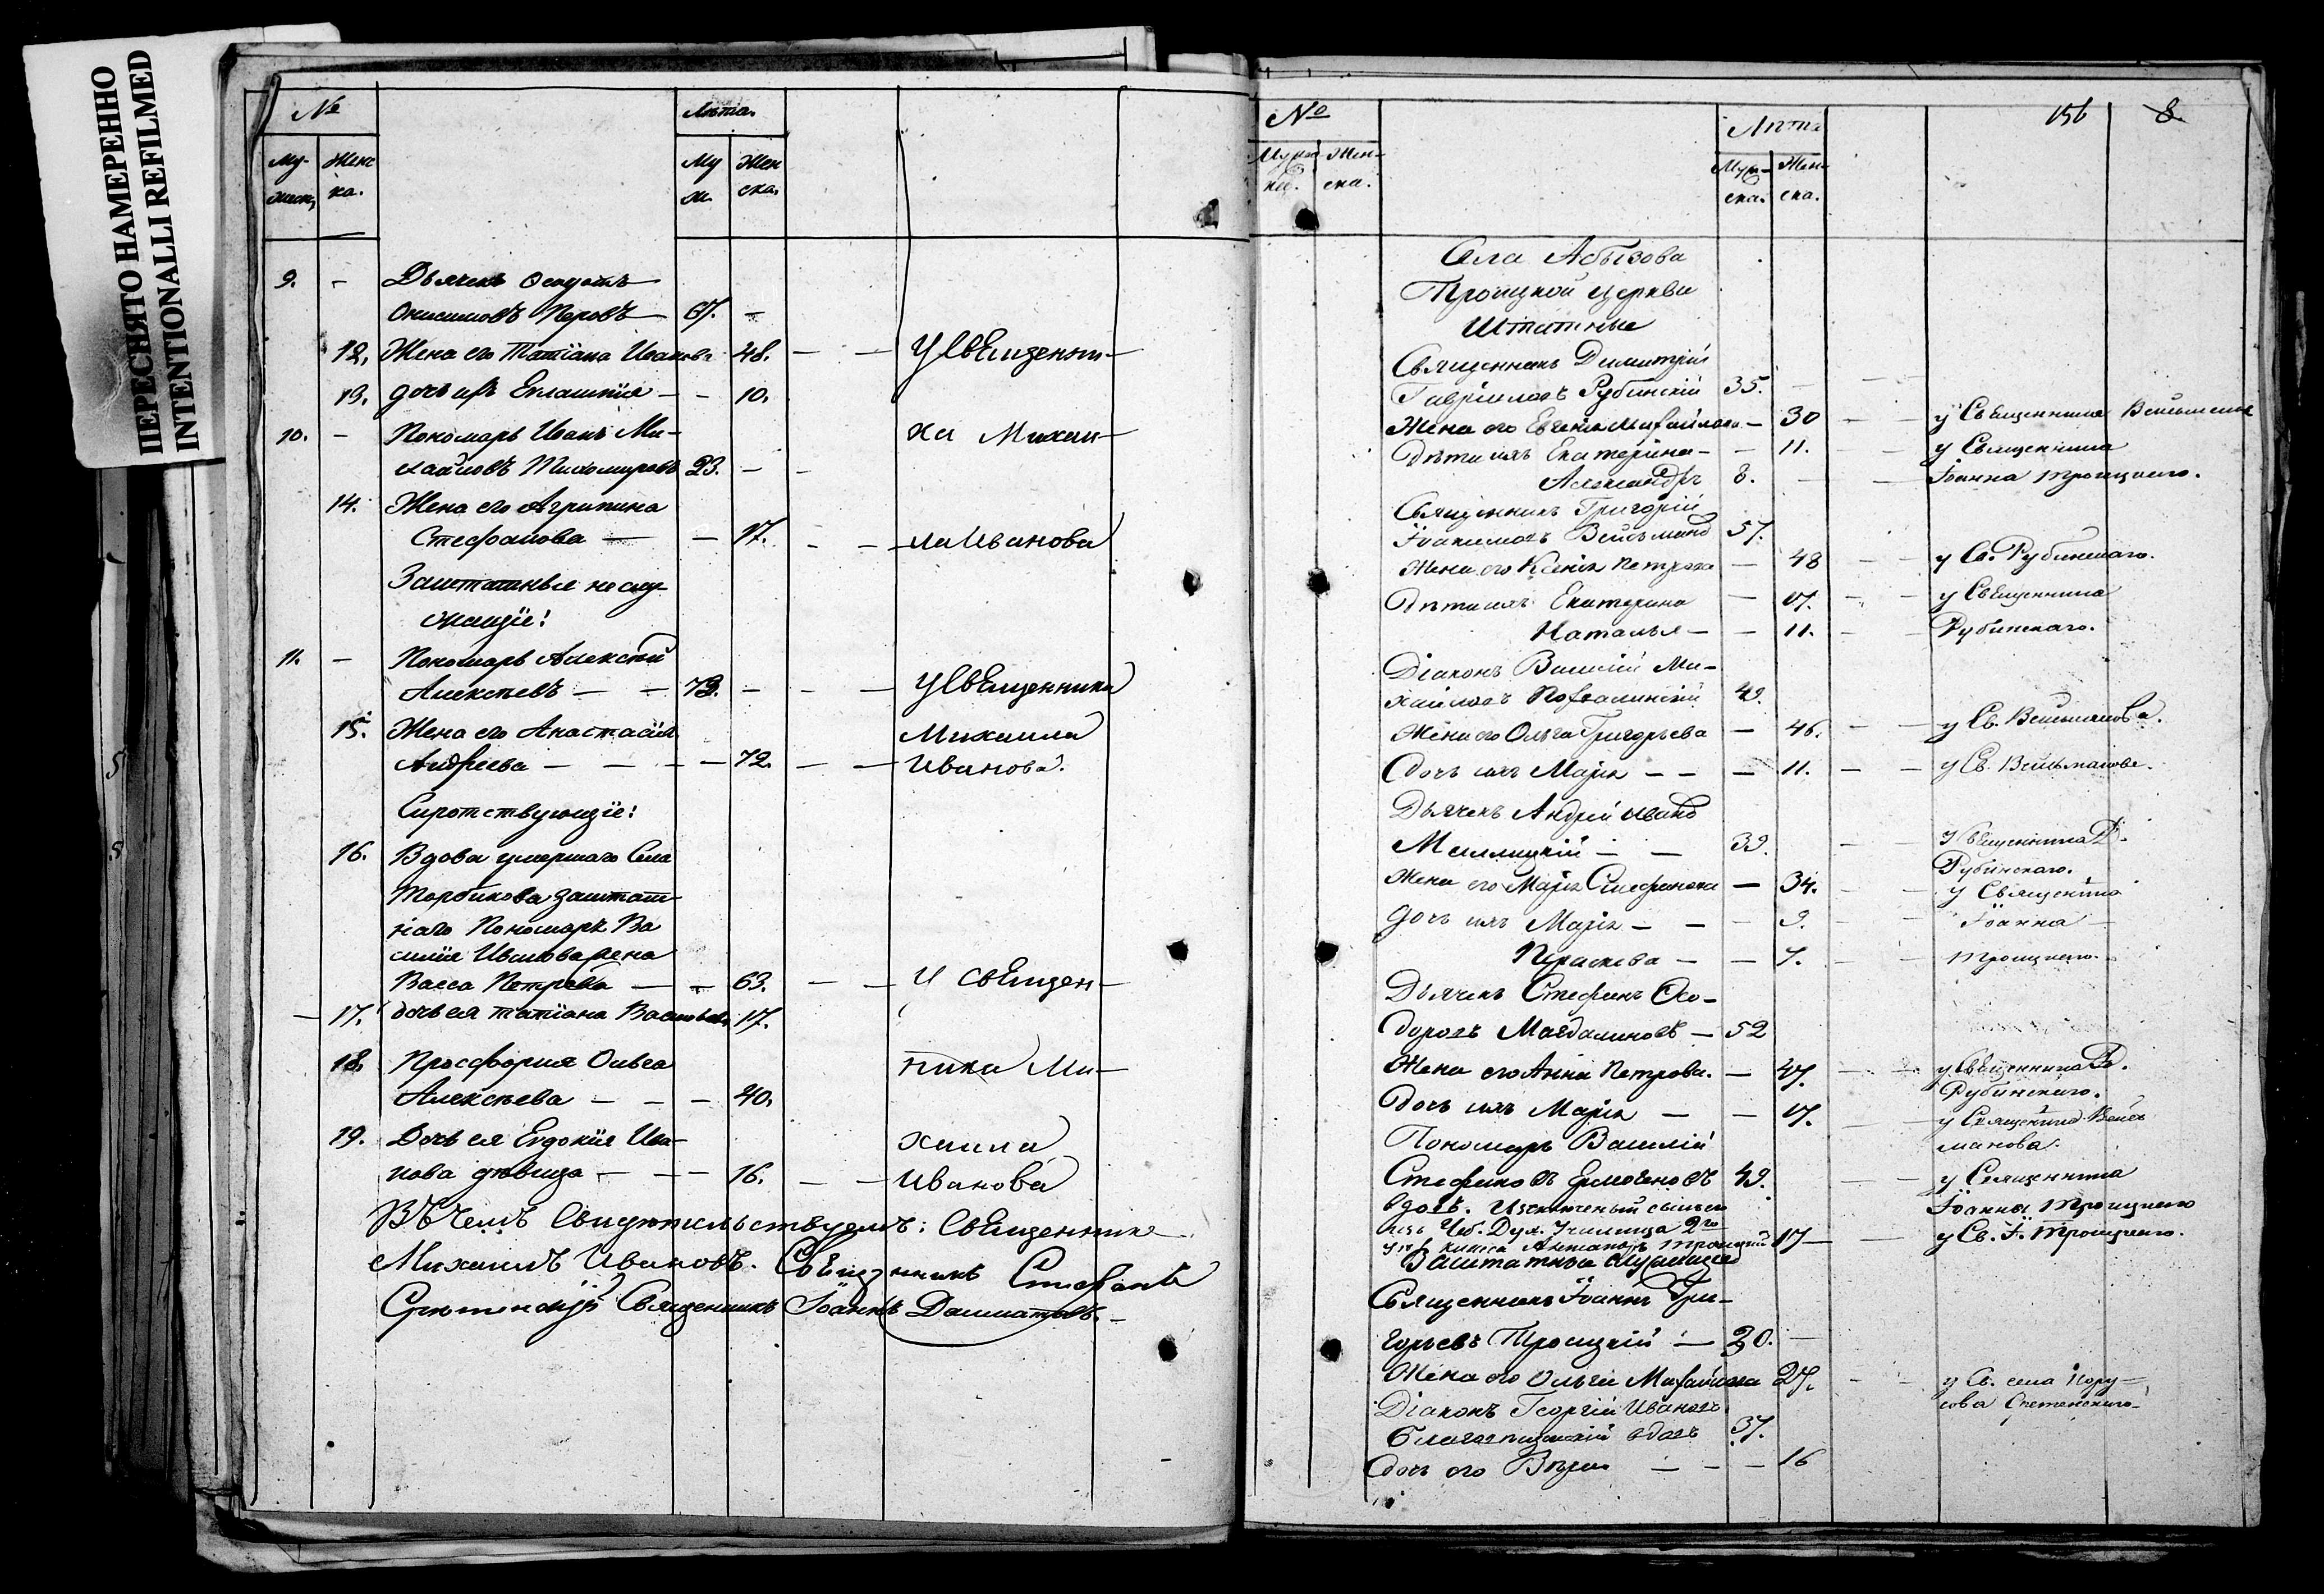 ПЕРЕСНЯТО НАМЕРЕННО
INTENTIONALLI REFILMED
№
Лѣта.
Женс
ка.
Му
ж.
Жен
ска.
9. - Дьячекъ
Онисимовъ 67. -
12. Жена его Татіана Иванова 48. - - У Священни-
13. дочь ихъ - - 10.
10. - Пономарь Иванъ Ми- ка Михаи-
хайловъ Тихомировъ 23. - -
14. Жена его Агрипина
Стефанова - - 17. - - ла Иванова
Заштатные не слу-
жащіе:
11. - Пономарь Алексѣй
Алексѣевъ - - 73. - - - У Священника
15. Жена его Анастасія Михаила
Андреева - - - - 72. - - Иванова.
Сиротствующіе:
16. Вдова умершаго Села
заштат-
наго Пономаря Ва
силія Иванова жена
Васса Петрова - - 63. - - У Священ-
- 17. дочь ея Татіана Васильева 17.
18. Просфорня Ольга ника Ми-
Алексѣева - - - 40.
19. Дочь ея Евдокія Ива- хаила
нова дѣвица - - - 16. - - Иванова
Въ чемъ Свидѣтельствуемъ: Священникъ
Михаилъ Ивановъ. Священникъ Стефанъ
Священникъ Іоаннъ Далматовъ. -
№
Лѣта
156 8.
Жен-
ска.
Муж-
ска.
Жен-
ска.
Села Абызова
Троицкой церкви
Штатные
Священникъ Димитрій
Гавриловъ Рубинскій 35. -
Жена его Евгенія Михайлова - 30 - - у Священника
Дѣти ихъ Екатерина - - 11. - у Священника
Александръ 8. - - Іоанна Троицкаго.
Священникъ Григорій
Іоакимовъ 57.
Жена его Ксенія Петрова - 48 - у Св. Рубинскаго.
Дѣти ихъ Екатерина - 17. - - у Священника
Наталья - - 11. - Рубинскаго.
Діаконъ Василій Ми-
хайловъ 49.
Жена его Ольга Григорьева - 46. - - у Св. Вейсманова.
Дочь ихъ Марія - - - 11. - - у Св. Вейсманова.
Дьячекъ Андрей Иванов
39. - - У Священника Д.
Рубинскаго.
Жена его Марія Стефанова - 34. - - У Священника
дочь ихъ Марія - - - 9. - - Іоанна -
Параскева - - 7. - - Троицкаго.
Дьячекъ Стефанъ Ѳео-
доровъ Магдалиновъ - 52
Жена его Анна Петрова. - 47. - - у Священника Д.
Рубинскаго.
Дочь ихъ Марія - - 17. - у Священника Вейс
манова.
Пономарь Василій
Стефановъ Ермогеновъ 49. - - у Священника
вдовъ. Исключеный Іоанна Троицкаго
изъ Чеб. Дух. Училища 2го
класса Троицкій 17 - - у Св. І. Троицкаго.
Заштатные
Священникъ Іоаннъ Гри-
горьевъ Троицкій - 30. -
Жена его Ольга Михайлова 27. - - у Св. села Нору-
сова
Діаконъ Георгій Ивановъ
вдовъ 37.
Дочь его Вѣра - - - 16